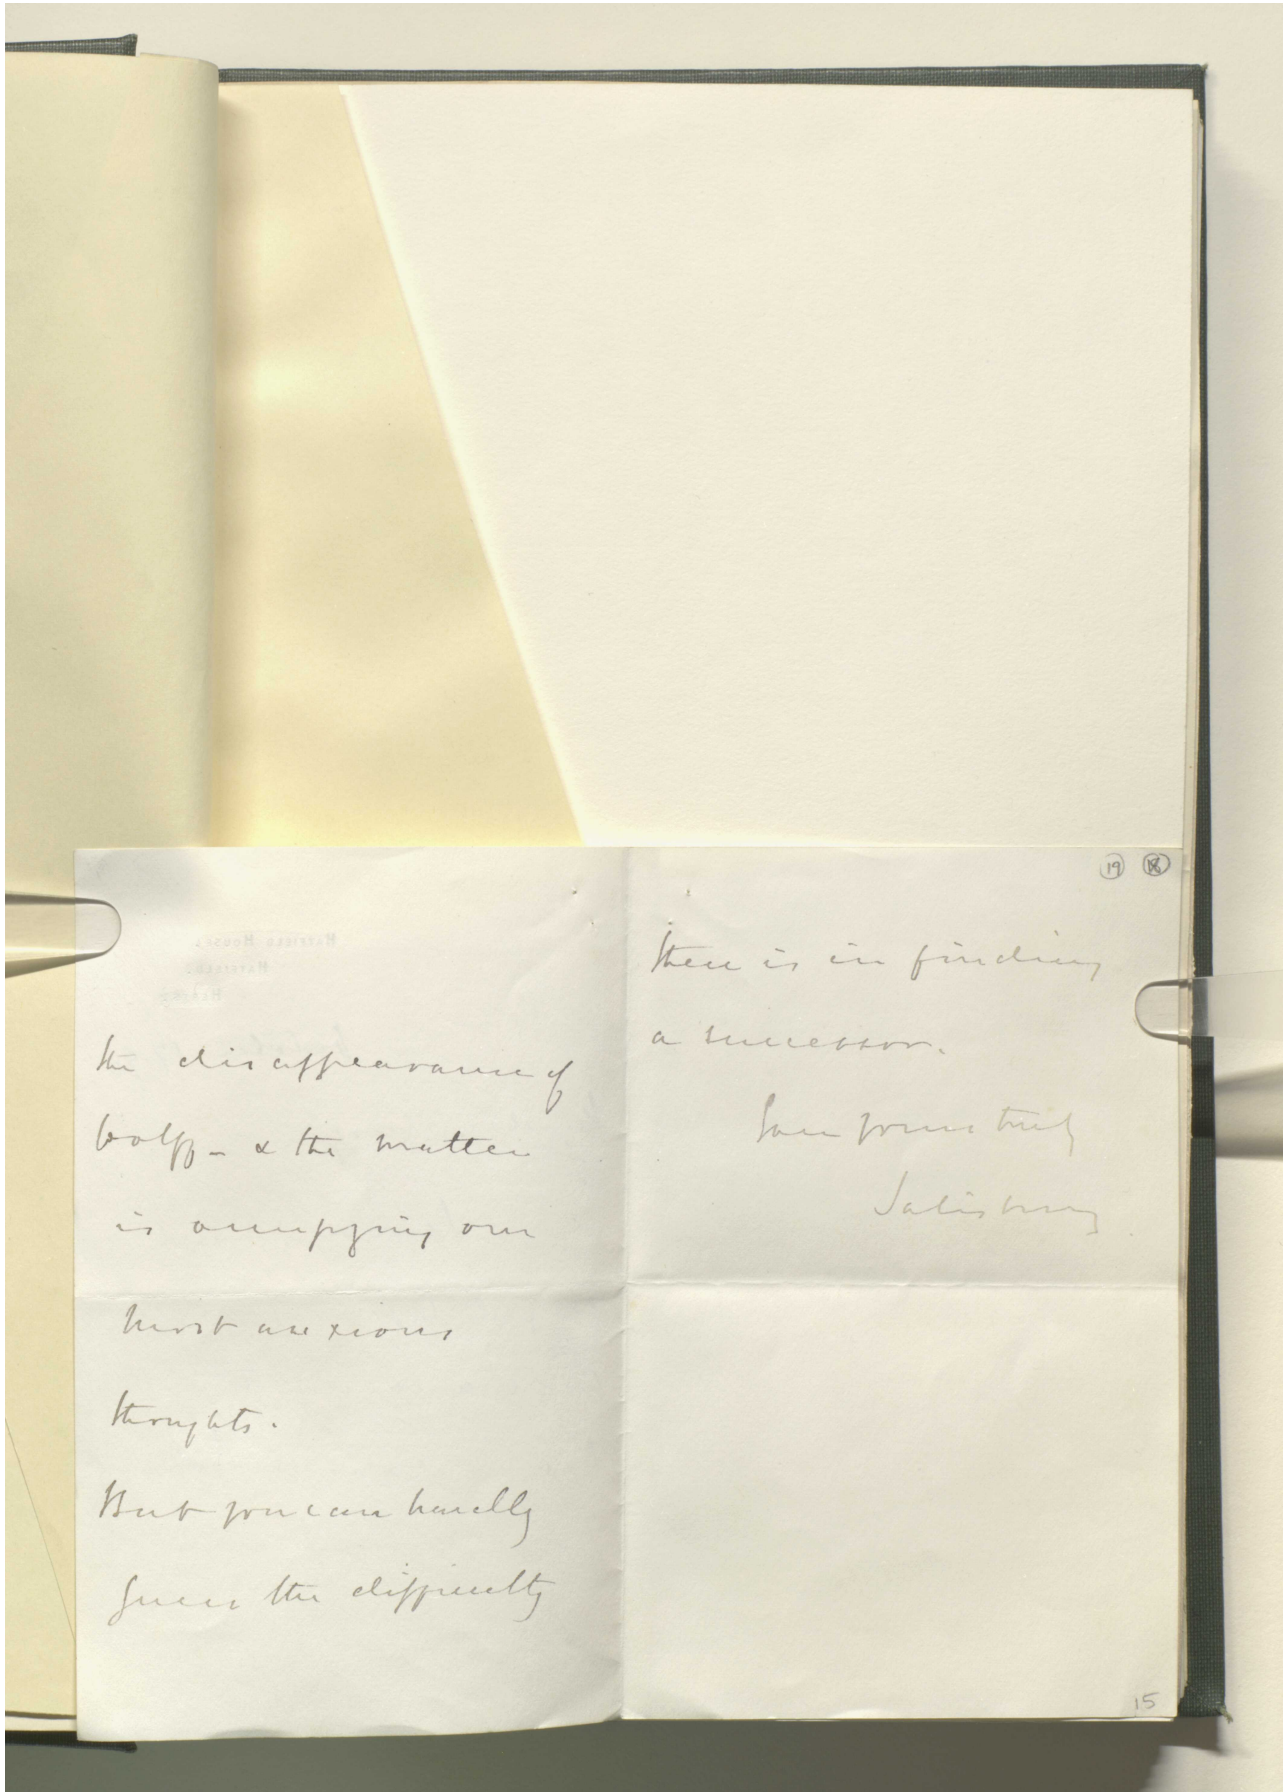 the disappearance of
Wolff - & the matter
is occupying our
most anxious
thoughts.
But you can hardly
guess the difficulty
19 18
there is in finding
a successor.
Yours truly
Salisbury
15
HATFIELD HOUSE,
HATFIELD,
HERTS.